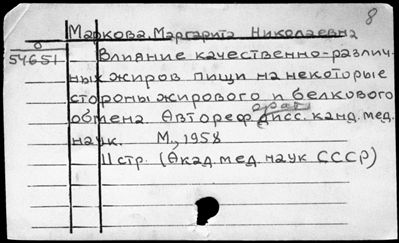 8
Маркова, Маргарита Николаевна
0
54651
Влияние качественно-различ-
ных жиров пищи на некоторые
стороны жирового и белкового
обмена. Автореф дисс. канд. мед.
наук. М., 1958
11 стр. (Акад мед наук СССР)